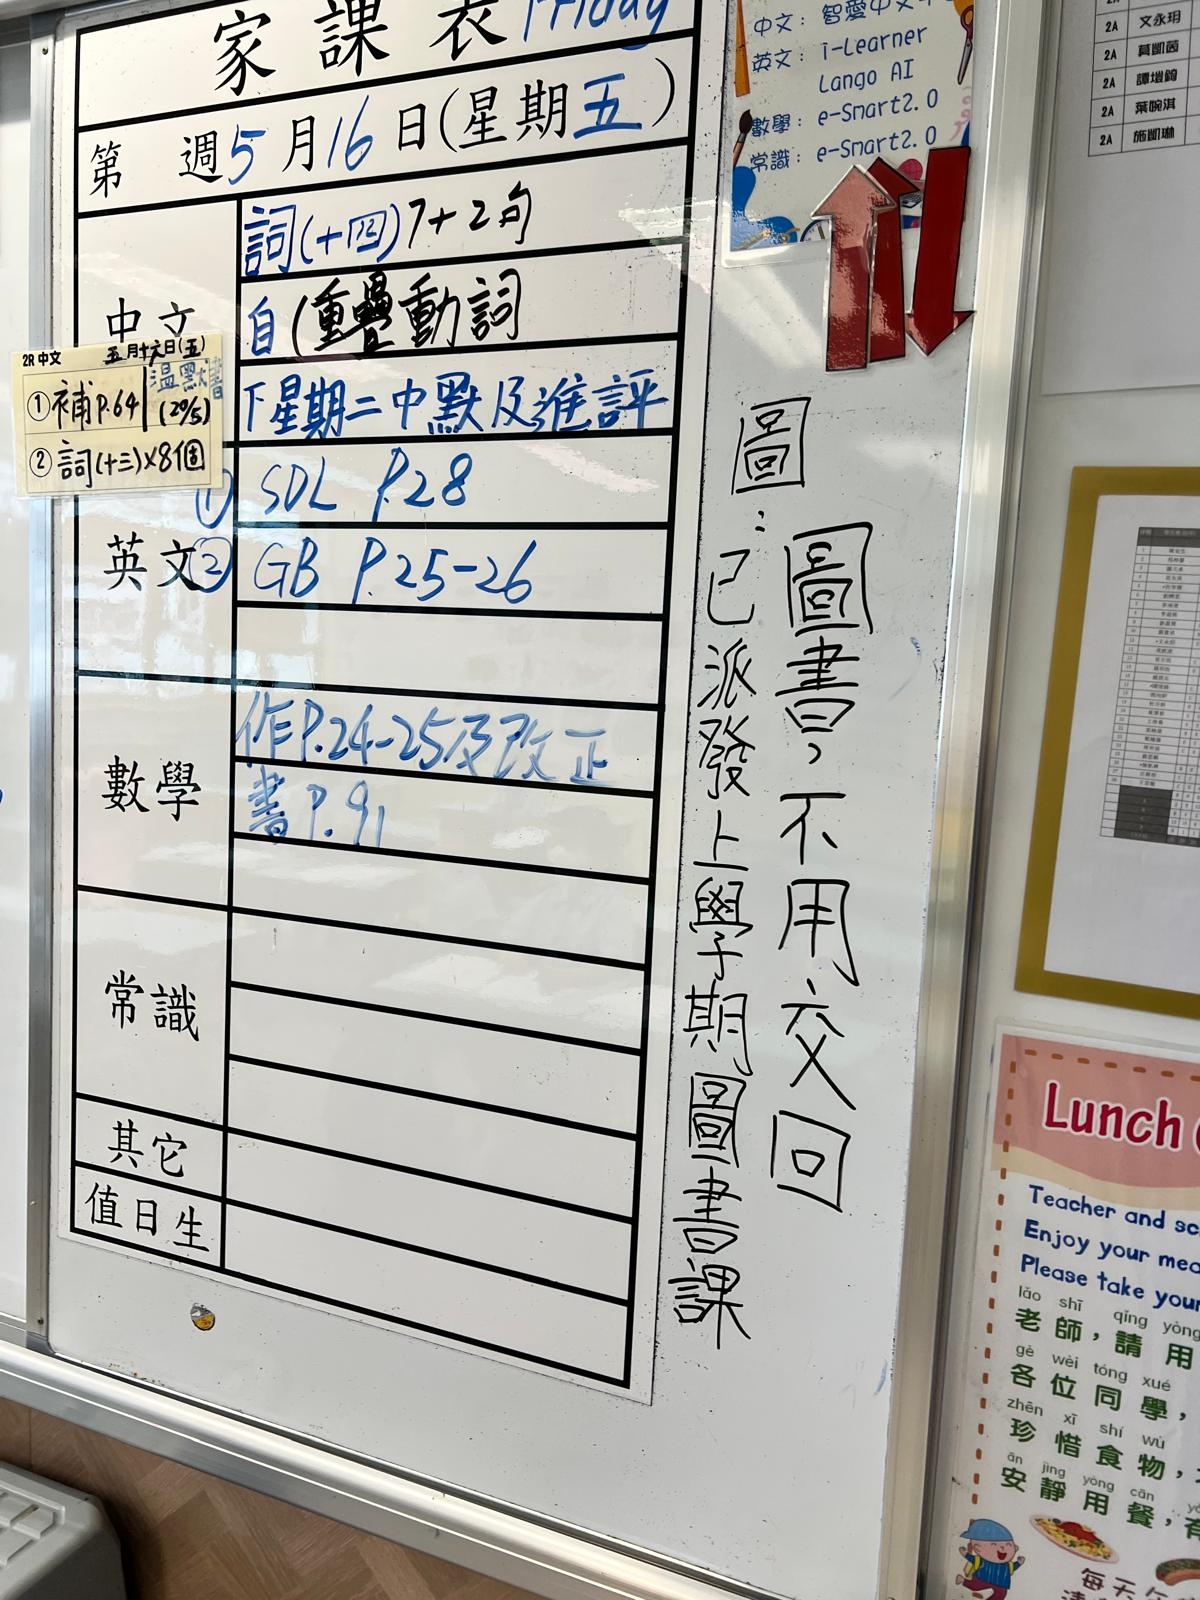 家課表 Friday
第 週5月16日(星期五)
中文
詞(十四)7+2句
自(重疊動詞
下星期二中默及進評
2R 中文 五月十六日(五)
①補P.64
溫默書
(20/5)
②詞(十三)×8個
英文
① SDL P.28
② GB P.25-26
數學
作P.24-25及改正
書P.91
常識
其它
值日生
圖:已派發上學期圖書課
圖書,不用交回
中文:智愛中文
英文:i-Learner
Lango AI
數學:e-Smart2.0
常識:e-Smart2.0
2A 文永玥
2A
2A 譚塏鍧
2A 葉婉淇
2A 施凱琳
Lunch
Teacher and
Enjoy your
Please take your
lǎo shī qǐng yòng
老師,請用
gè wèi tóng xué
各位同學,
zhēn xī shí wù
珍惜食物,
ān jìng yòng cān
安靜用餐,
每天